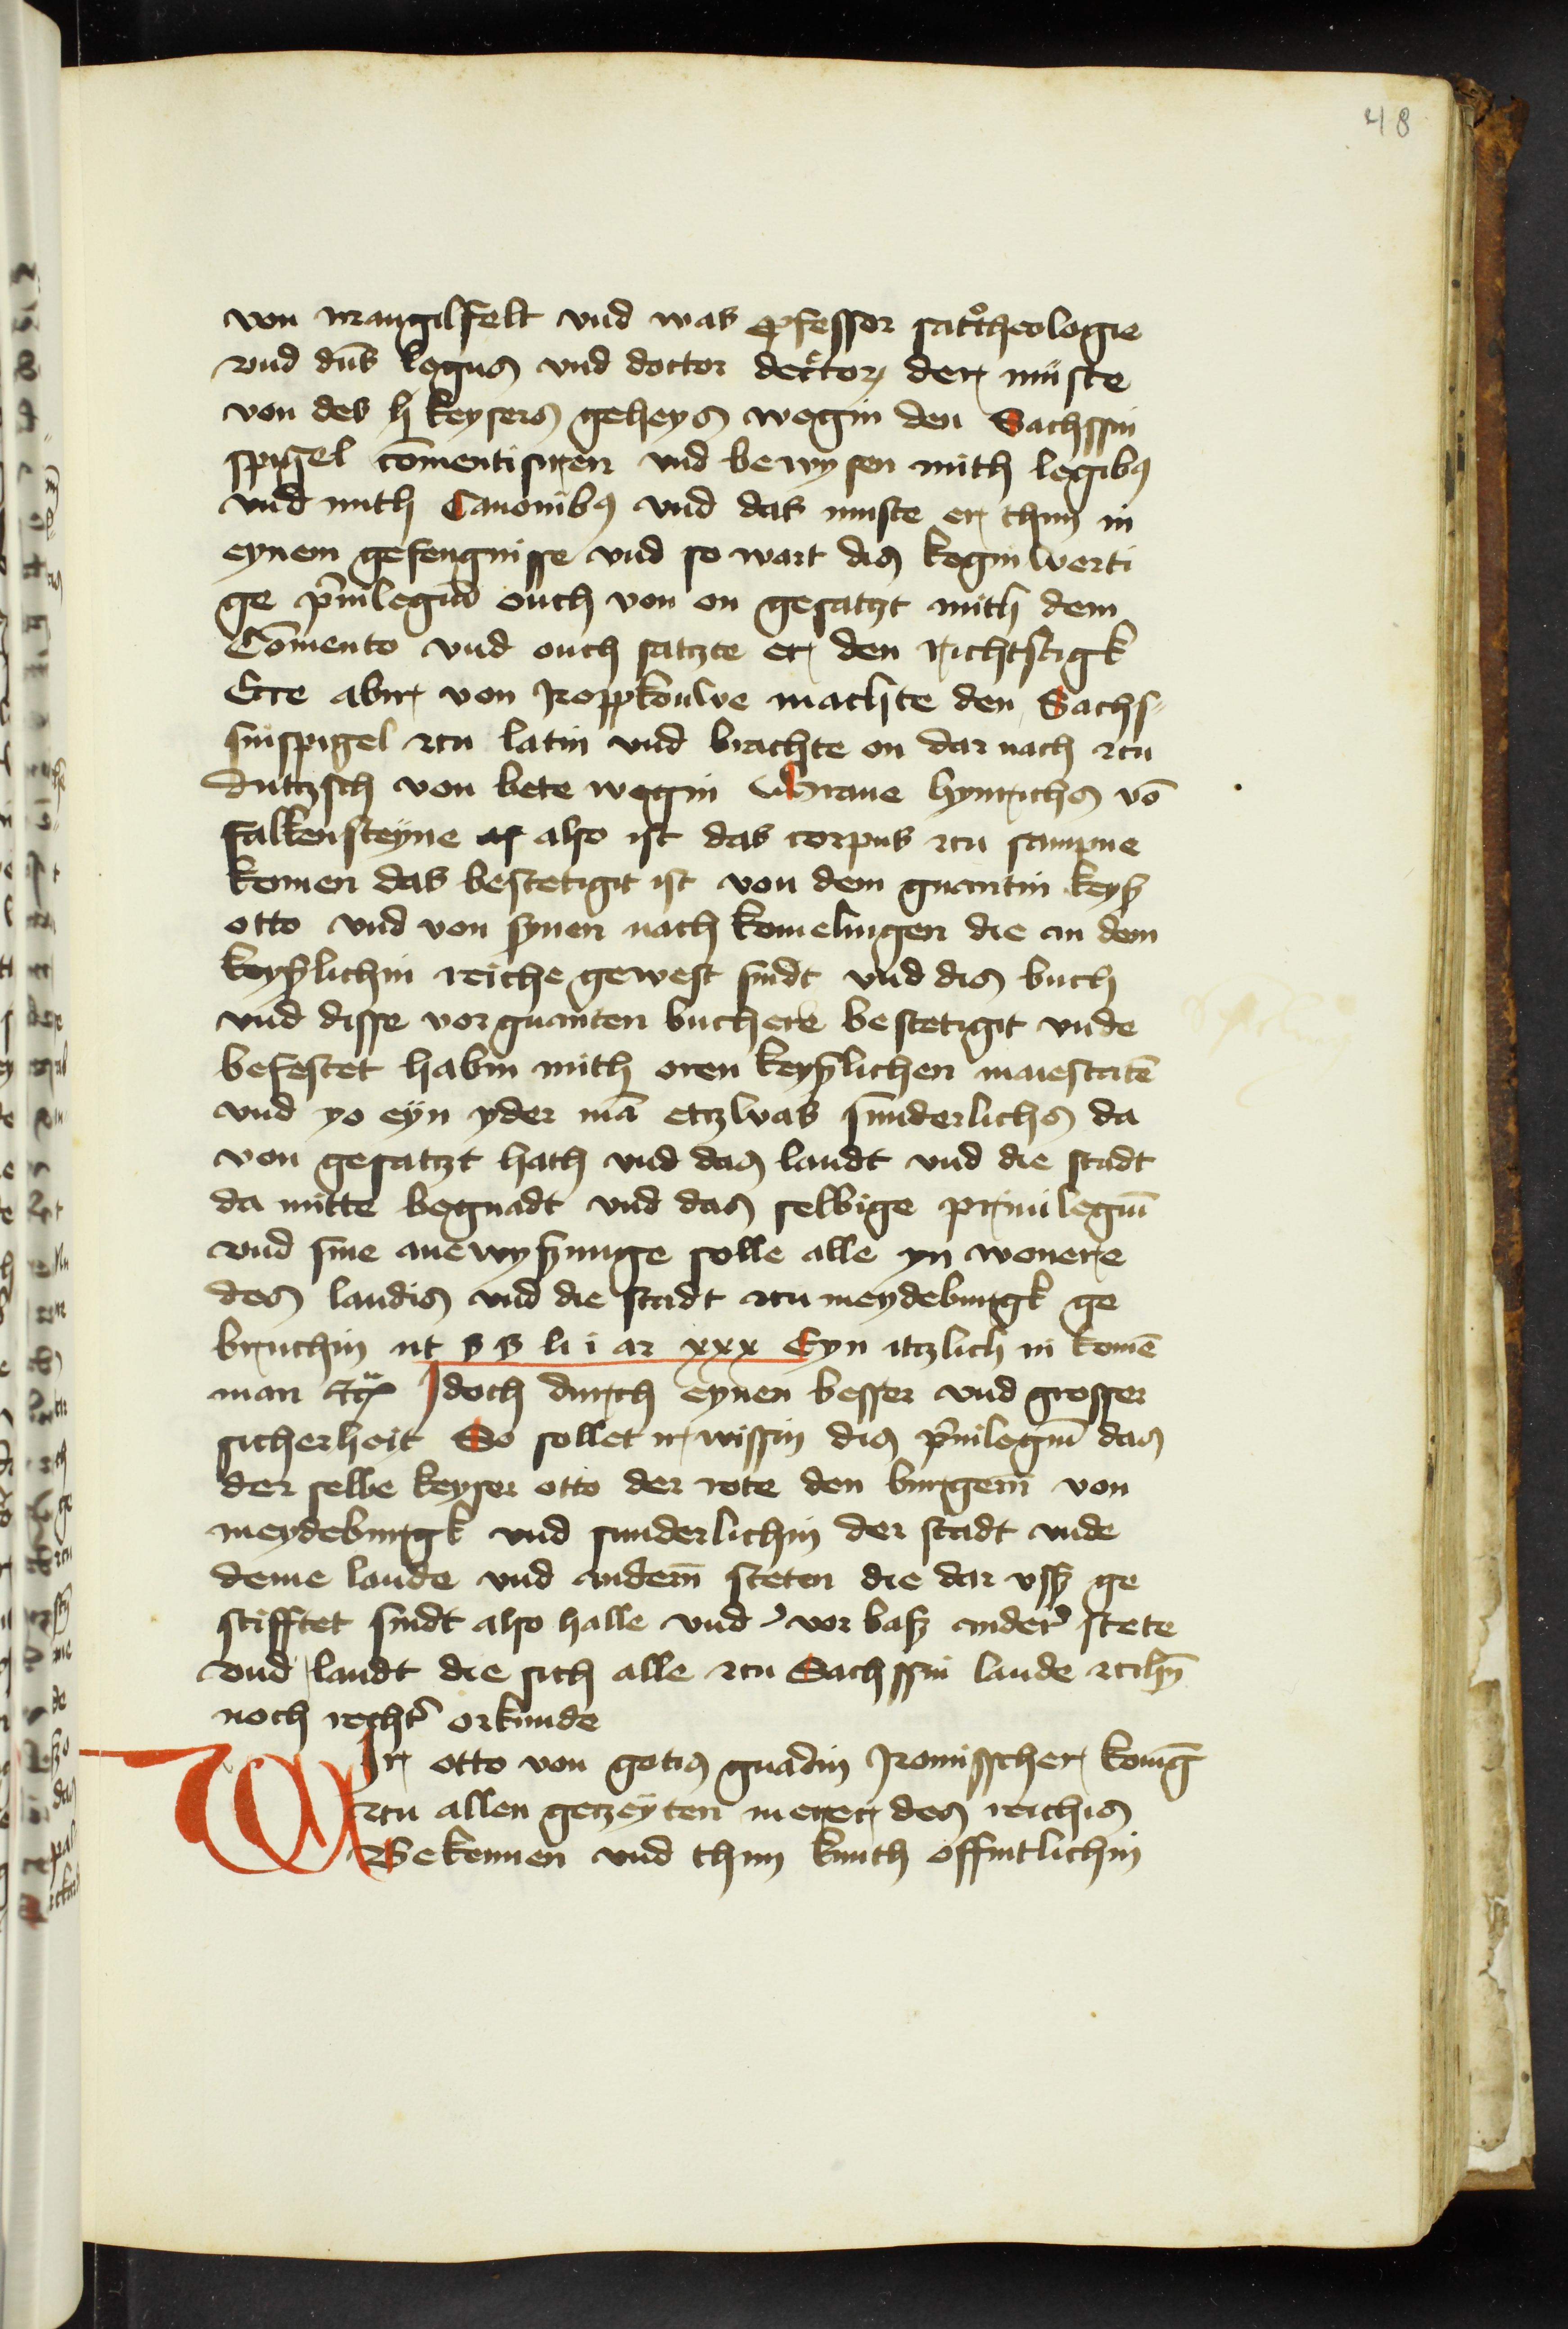 48
von mangilfelt vnd was pfessor satͦtheologie
vnd dn̄s legus vnd doctor decͬtor der müste
von des h keysers geheys wegin den Sachssin
spigel cōmentisiren vnd bewysen mith legibꝰ
vnd mith Canonibꝰ vnd das muste er thun in
eynem gefengnisse vnd so wart dis keginwerti
ge p̄uilegiū ouch von on gesatzt mith dem
Cōmento vnd ouch satzte er den richtstigk
Ecce abir von roppkouwe machte den Sachs-
sinspigel zcu latin vnd brachte on dar nach zcu
dutzsch von bete wegin Graue hynrichs vō
falkensteyne also ist das corpus zcu sampne
komen das bestetigit ist von dem gnantin keyß
otto vnd von synen nach komelingen die an dem
keyßlichin reiche gewest sindt vnd dis buch
vnd disse vorgnanten buchere bestetigit vnde
befestet habin mith oren keyßlichen maiestatē
vnd yo eyn yder mā etzwas sunderlichs da
von gesatzt hath vnd das landt vnd die stadt
da mitte begnadt vnd das selbige priuilegiū
vnd sine anewyßunge solle alle yn wonere
des landis vnd die stadt zcu meydeburgk ge
bruchin ut ß ß li i ar xxx Eyn itzlich in komē
man Jdoch durch eynen besser vnd grosser
sicherheit So sollet ir wissin dis p̄uilegiū das
der selbe keyser otto der rote den burgern̄ von
meydeburgk vnd sunderlichin der stadt vnde
deme lande vnd andern̄ steten die dar vſß ge
stifftet sindt also halle vnd vor baß ander̓ stete
vnd landt die sich alle zcu Sachssin lande zcihn̄
noch recht̓ orkunde
Wir otto von gotis gnadin romisscher koniḡ
zcu allen getzeyten merer des reichis
Bekennen vnd thun kunth offintlichin